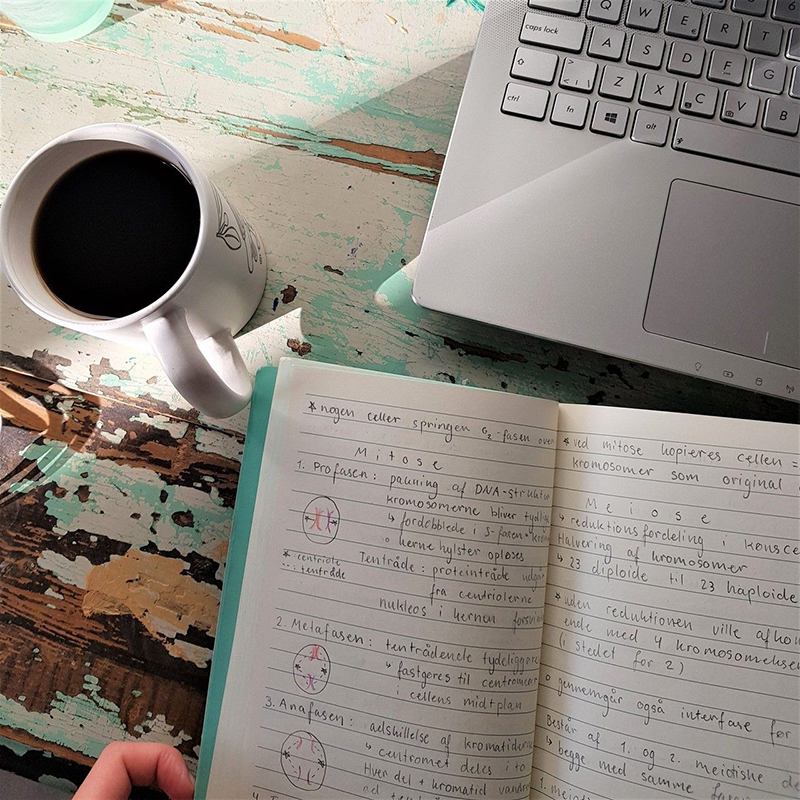 Q W E R T
caps lock A S D F G
> < \ Z X C V B
ctrl fn alt
* nogen celler springer G2-fasen over
Mitose
1. Profasen: pakning af DNA-struktur
kromosomerne bliver tydlig
↳ fordoblede i S-fasen
○ kerne hylster opløses
* centriole
--: tentråde
Tentråde: proteintråde udgår
fra centriolerne
nukleos i kernen forsvin
2. Metafasen: tentrådende tydeliggøre
↳ fastgøres til centromer
i cellens midtplan
3. Anafasen: adskillelse af kromatiderne
↳ centromet deles i to
Hver del + kromatid vandre
* ved mitose kopieres cellen =
kromosomer som original
Meiose
↳ reduktionsfordeling i kønscel
Halvering af kromosomer
↳ 23 diploide til 23 haploide
* uden reduktionen ville afkom
ende med 4 kromosomsæt
(i stedet for 2)
○ gennemgår også interfase før
Består af 1. og 2. meiotiske de
↳ begge med samme
1. meioti